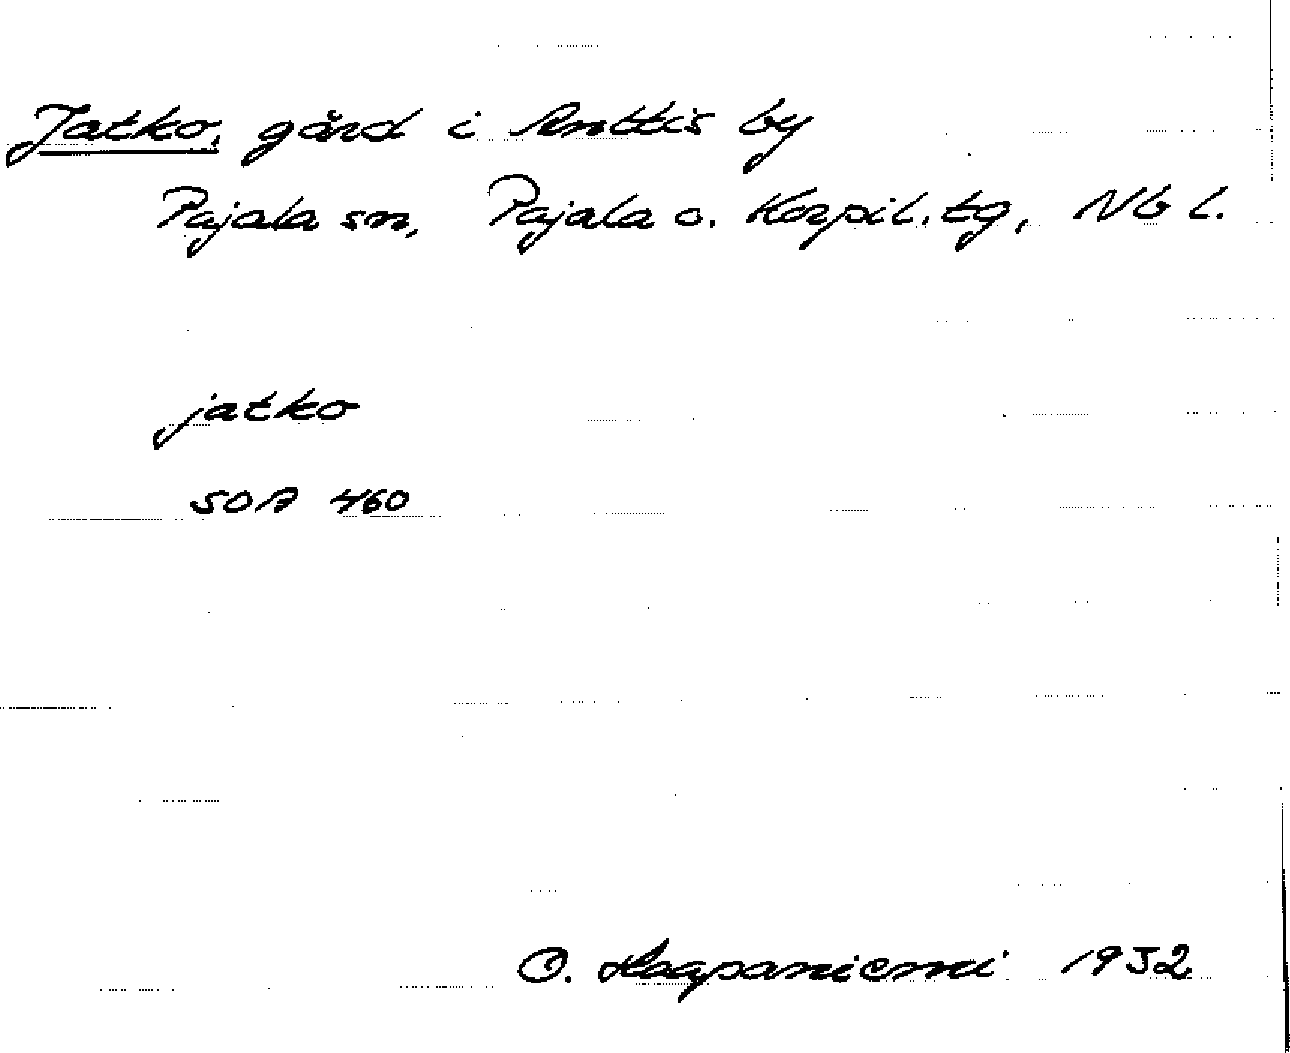 Jatko, gård i Anttis by
Pajala sn, Pajala o. Korpil. tg, Nb l.
jatko
SOA 460
O. Haapaniemi 1932